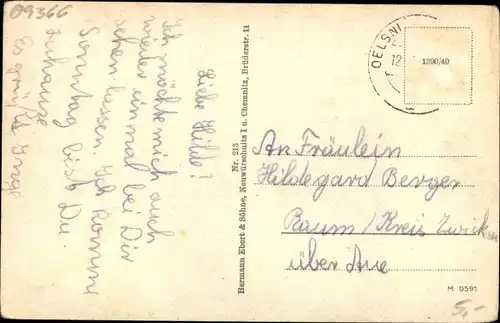 09366
Liebe Hilde!
Ich möchte mich auch
wieder einmal bei Dir
sehen lassen. Ich komme
Sonntag bist Du
zuhause
Es grüßt Inge
Hermann Ebert & Söhne, Neuwürschnitz I u. Chemnitz, Brüderstr. 11
Nr. 213
OELSNI
12
1390/40
An Fräulein
Hildegard Berger
Raum/Kreis Zwickau
über Aue
M 0591
5,-